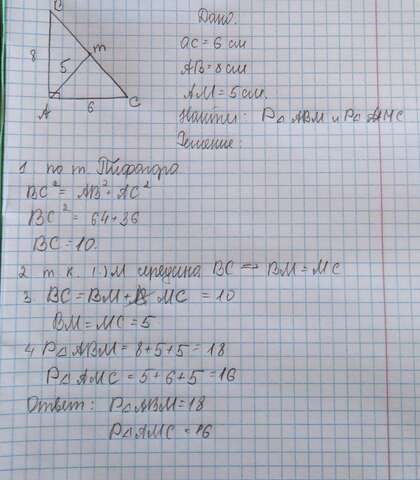 B
Дано:
8
5
m
ac = 6 см
AB = 8 см
A
6
C
AM = 5 см.
Найти: P△ ABM и P△ AMC
Решение:
1 по т. Пифагора
BC² = AB² + AC²
BC² = 64+36
BC = 10.
2 т.к. (.) M середина BC => BM = MC
3 BC = BM + MC = 10
BM = MC = 5
4 P△ ABM = 8+5+5 = 18
P△ AMC = 5+6+5 = 16
Ответ: P△ ABM = 18
P△ AMC = 16